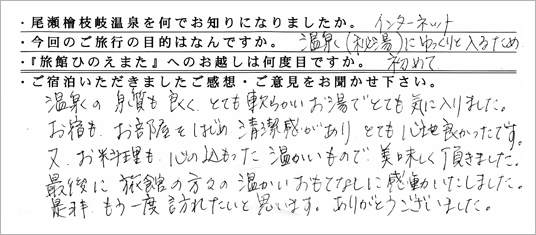 ・尾瀬檜枝岐温泉を何でお知りになりましたか。 インターネット
・今回のご旅行の目的はなんですか。 温泉(秘湯)にゆっくりと入るため
・『旅館ひのえまた』へのお越しは何度目ですか。 初めて
・ご宿泊いただきましたご感想・ご意見をお聞かせ下さい。
温泉の泉質も良く、とても軟らかいお湯でとても気に入りました。
お宿も、お部屋をはじめ清潔感があり とても心地良かったです。
又、お料理も、心の込もった温かいもので、美味しく頂きました。
最後に 旅館の方々の温かいおもてなしに感動いたしました。
是非、もう一度訪れたいと思います。ありがとうございました。